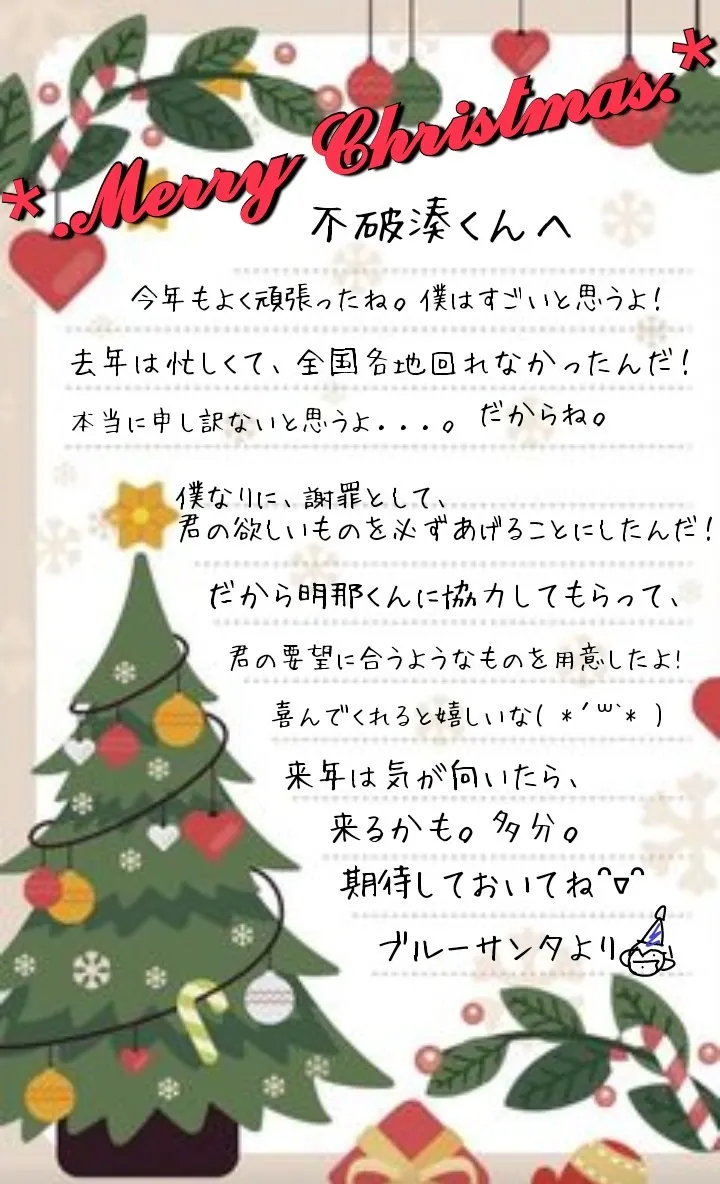 *.Merry Christmas.*
不破湊くんへ
今年もよく頑張ったね。僕はすごいと思うよ!
去年は忙しくて、全国各地回れなかったんだ!
本当に申し訳ないと思うよ・・・。だからね。
僕なりに、謝罪として、
君の欲しいものを必ずあげることにしたんだ!
だから明那くんに協力してもらって、
君の要望に合うようなものを用意したよ!
喜んでくれると嬉しいな( *´꒳`* )
来年は気が向いたら、
来るかも。多分。
期待しておいてね^∇^
ブルーサンタより